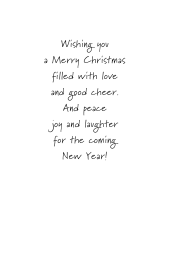 Wishing you
a Merry Christmas
filled with love
and good cheer.
And peace
joy and laughter
for the coming
New Year!